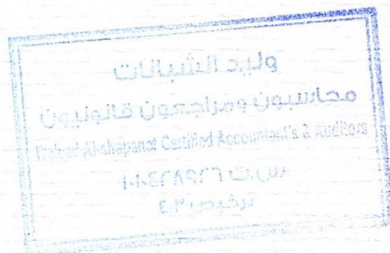 وليد الشبانات
محاسبون ومراجعون قانونيون
Waleed Al-shapanat Certified Accountant's & Auditors
س.ت ١٠١٠٤٢٨٩٢٦
ترخيص ٤٠٣